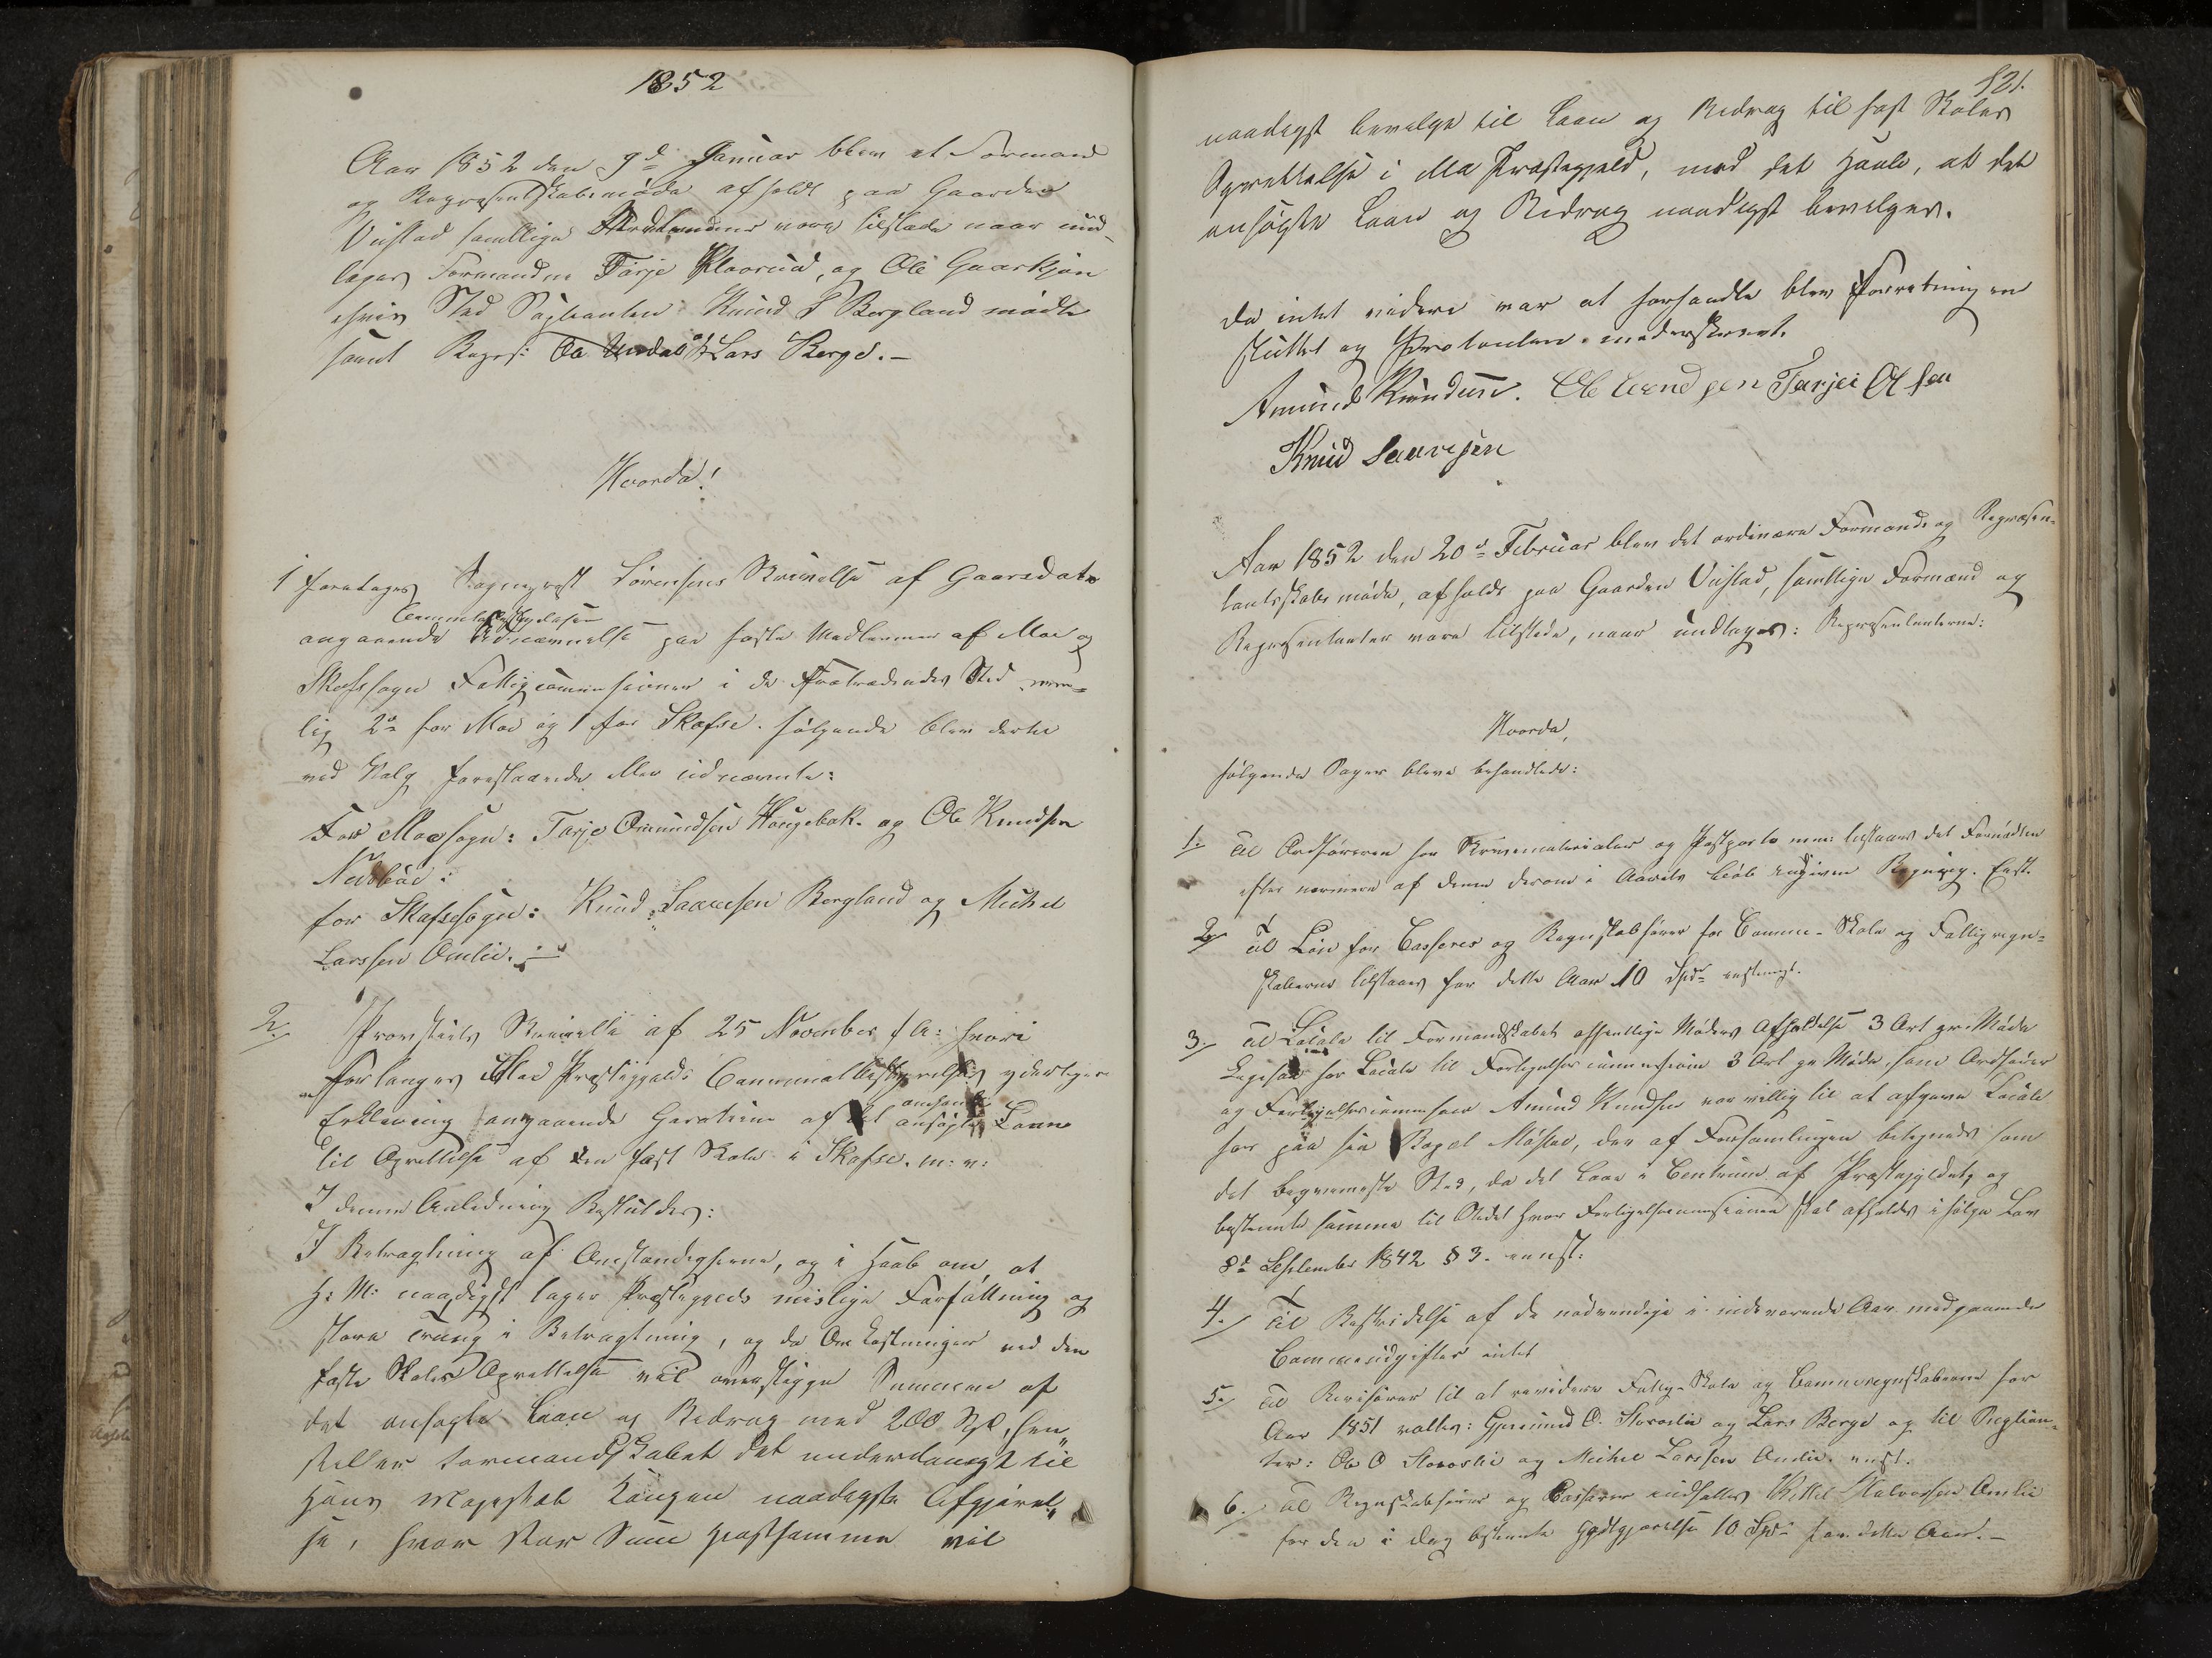 1852
Aar 1852 den 9d Januar blev et Formand
og Repræsentskabsmøde afholdt paa Gaarden
Vistad samtlige vare tilstæde naar und-
tages Formændene Tarje og Ole Gaarkjøn
Sted Suplianten Knud S Bergland mødte
samt Repræs: Lars Berge.-
Hvorda!
1 foretoges Sogneprest Sørensens Skrivelse af Gaarsdato
angaaende Udnævnelse paa faste Medlemmer af Moe og
Skafsesogn Fattigcommisioner i de Fratrædendes Sted nem-
lig 2de for Moe og 1 for Skafse. følgende blev dertil
ved Valg forestaaende eller udnævnte:
For Moesogn: Tarje Omundsen Haugebak. og Ole Knudsen
for Skafsesogn: Knud Saavesen Bergland og Mikel
Larssen Omlie.
2/ Provstiets Skrivelse af 25 November f. A: hvori
forlanges Moe Præstegjelds Communalbestyrelses yderligere
Erklæring angaaende Garantien af det ansøgte Laan
til Oprettelse af den fast Skole i Skafse. m: v:
I denne Anledning Besluttedes:
I Betragtning af Omstændighederne, og i Haab om, at
H: M: naadigst tager Præstegjelds mislige Forfattning og
store Trang i Betragtning, og da Omkostninger ved den
faste Skoles Oprettelse vil overstigge Summen af
det ansøgte Laan og Bidrag med 200 Spd, hen-
stiller Formandskabet det underdanigst til
Hans Majestæt Kongen naadigste Afgjørel-
se, hvor stor Sum Høistsamme vil
121.
naadigst bevilge til Laan og Bidrag til fast Skoles
Oprettelse i Moe Præstegjeld, med det Haab, at det
ansøgte Laan og Bidrag naadigst bevilges.
Da intet videre var at forhandle blev Forretningen
sluttet og Protocolen underskrevet.
Amund Knudsen. Ole Tarjei Olsen
Knud Saavesen
Aar 1852 den 20d Februar blev det ordinære Formands og Repræsen-
tantskabsmøde, afholdt paa Gaarden Vistad, samtlige Formænd og
Repræsentanter vare tilstede, naar undtages: Repræsentanterne:
Hvorda,
følgende Sager bleve behandlede:
1. Til Ordføreren for Skrivematerialer og Postporto m.m. tilstaaes det Fornødne
efter nærmere af denne derom i Aarets Løb indgiven Regning. Enst.
2/ Til Løn for Casserer og Regnskabsfører for Commune- Skole og Fattigregn-
skaberne tilstaaes for dette Aar 10 Spdr enstemigt.
3/ Til Locale til Formandskabets offentlige Møders Afholdelse 3 Ort pr. Møde
Ligesaa for Locale til Forligelsescommission 3 Ort pr Møde, som Ordfører
og Forligelsescommisær Amund Knudsen var villig til at afgive Locale
for paa sin Møstad, der af Forsamlingen betegnedes som
det beqvemeste Sted, da det laae i Centrum af Præstegjeldet, og
bestemte samme til Stedet hvor Forligelsescommisionen skal afholdes i følge Lov
8d September 1842 § 3. eenst:
4./ Til Bestridelse af de nødvendige i indeværende Aar medgaaende
Communeudgifter intet
5. Til Revisorer til at revidere Fattig- Skole og Communeregnskaberne for
Aar 1851 valtes: Gjermund O. Storoslie og Lars Berge og til Suplian-
ter: Ole O Storoslie og Mikel Larssen Omlie. enst.
6. Til Regnskabsfører og Casserer indsattes Kittel Halvorsen Omlie
for den i dag bestemte Godtgjørelse 10 Spd. for dette Aar.-